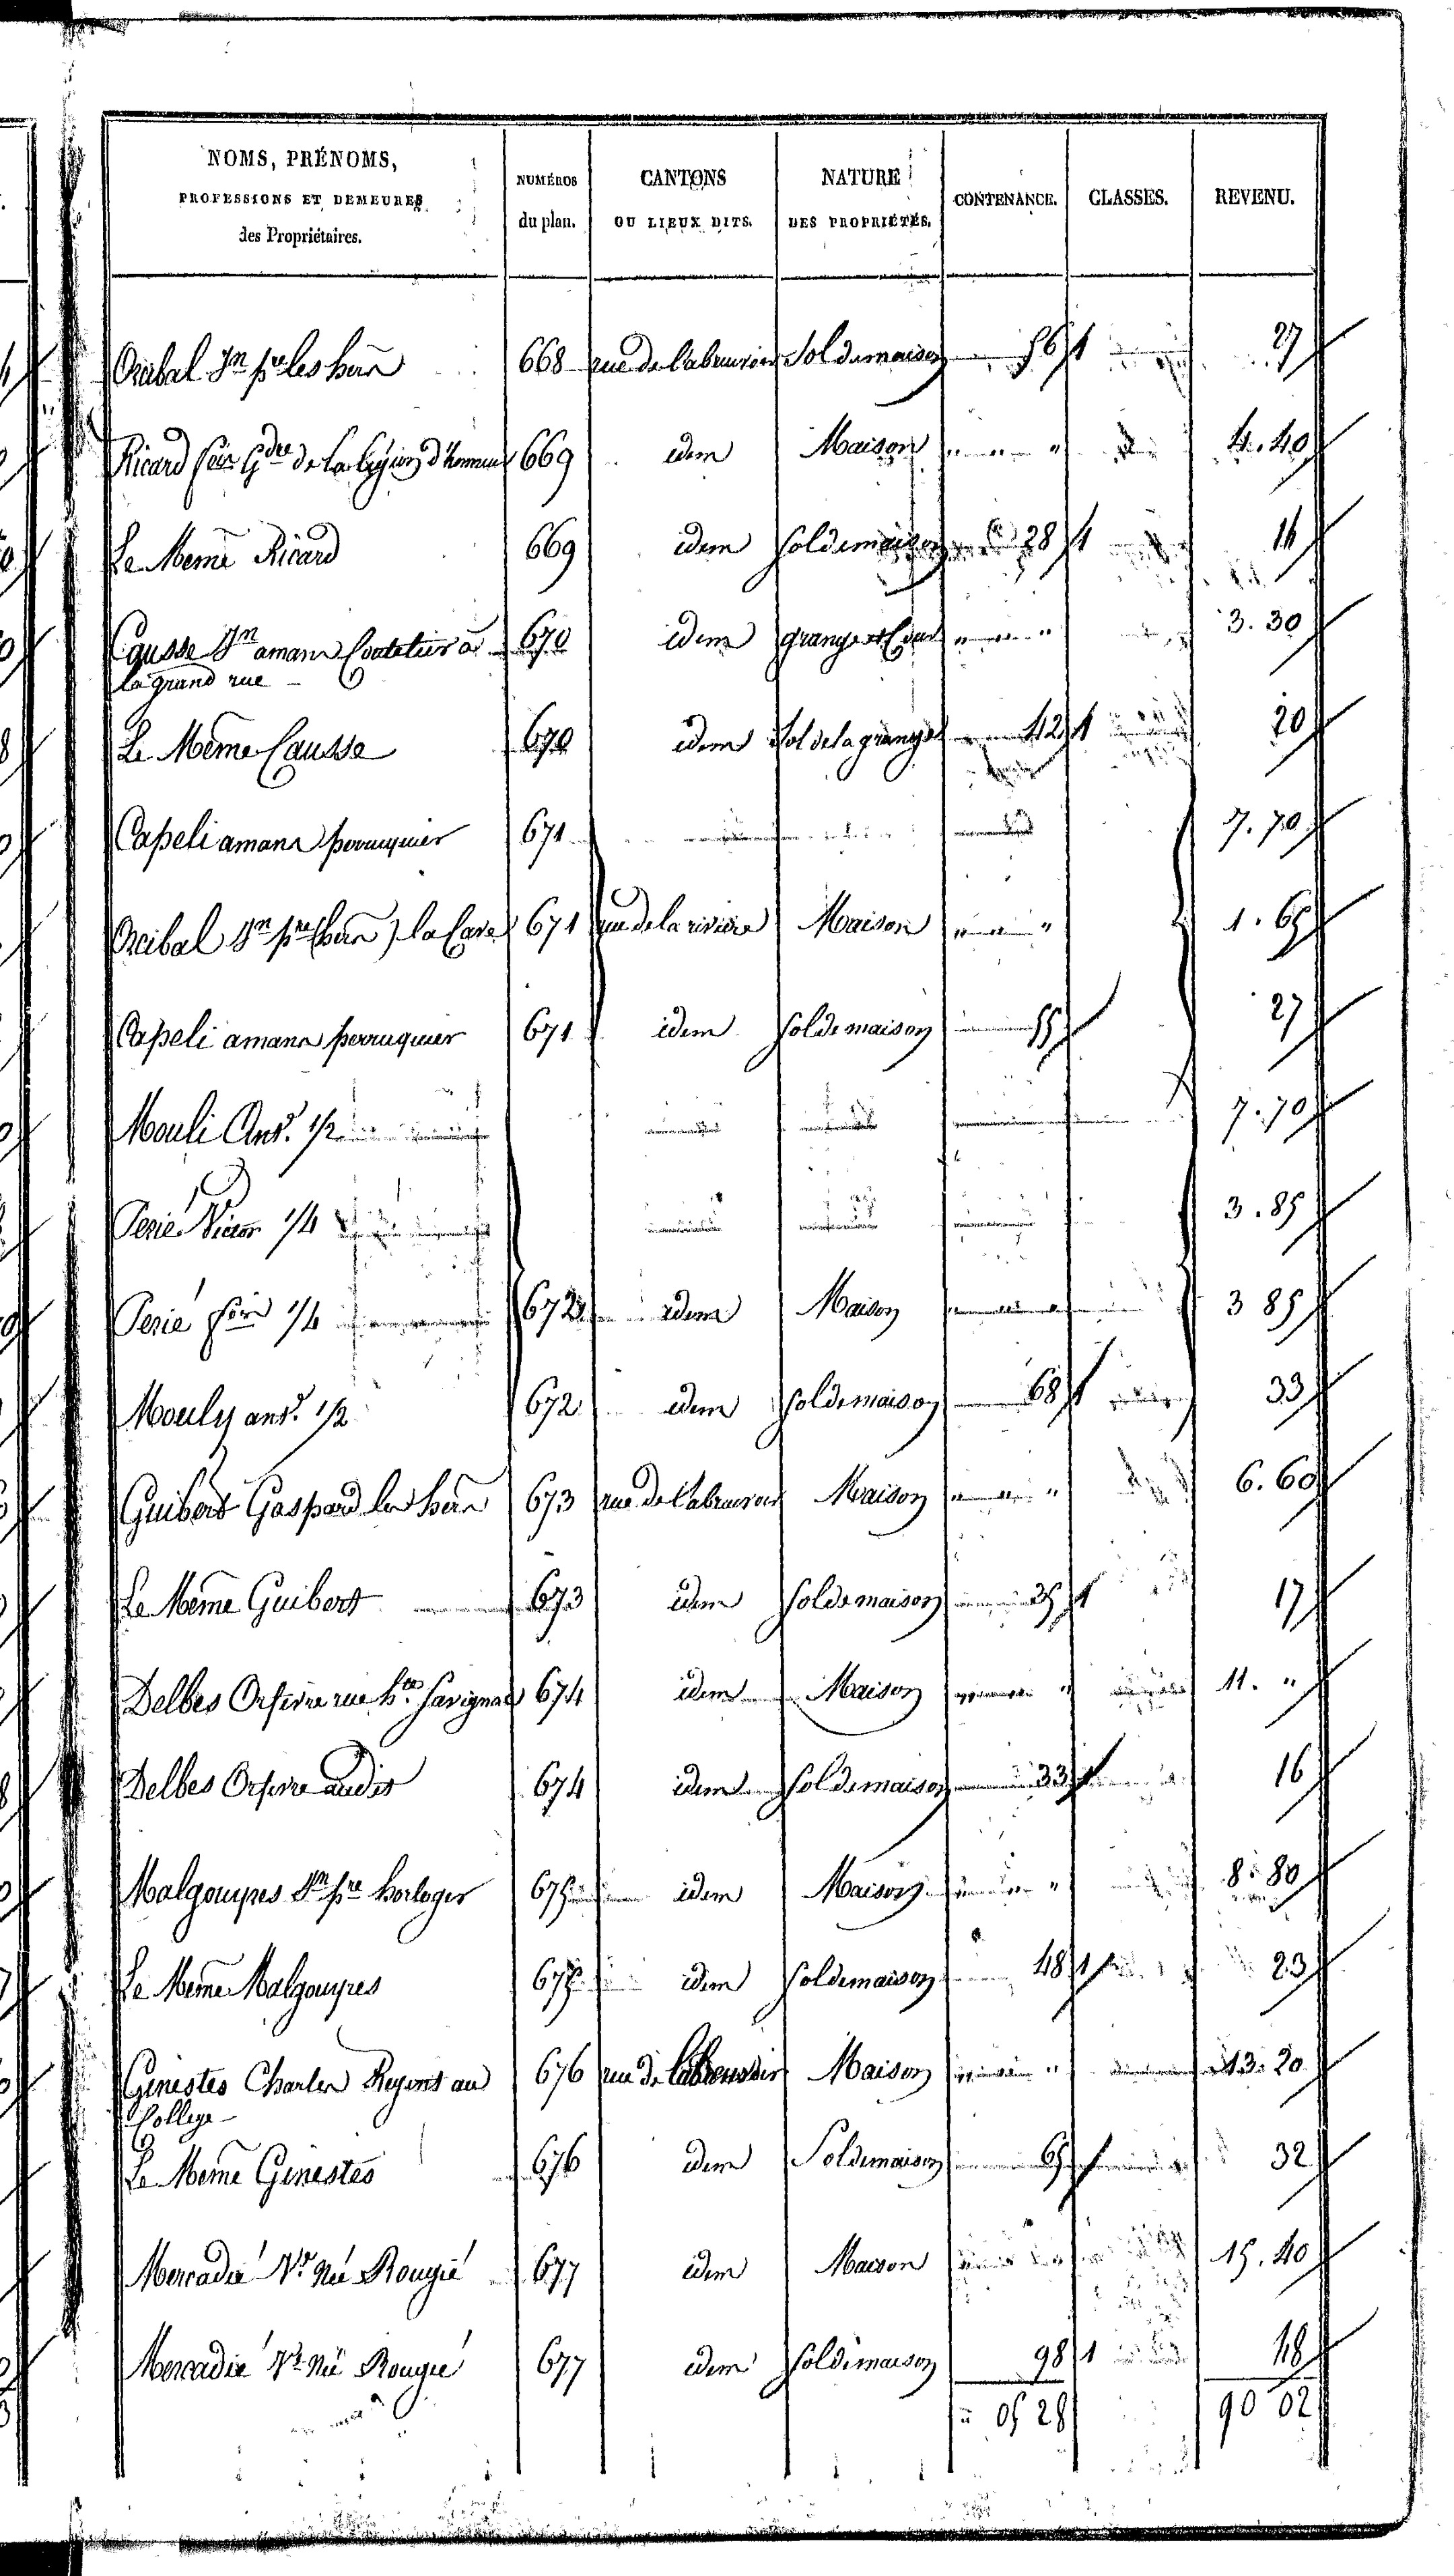 NOMS, PRÉNOMS, PROFESSIONS ET DEMEURES des Propriétaires. NUMÉROS du plan. CANTONS OU LIEUX DITS. NATURE DES PROPRIÉTÉS. CONTENANCE. CLASSES. REVENU.
Orcibal Jn pre les hers 668 rue de l'abreuvoir Sol de maison 56 1 27
Ricard Gdre de la légion d'honneur 669 idem Maison " " " 4.40
Le Meme Ricard 669 idem Sol de maison 28 1 14
Causse Jn amans Coutelier a 670 idem grange et Cour " " " 3.30
la grand rue
Le Même Causse 670 idem Sol de la grange 42 1 20
Capeli amans perruquier 671 7.70
Orcibal Jn pre (hers) la Cave 671 rue de la rivière Maison " " " 1.65
Capeli amans perruquier 671 idem Sol de maison 55 27
Mouli Ant. 1/2 7.70
Perié Victor 1/4 3.85
Perié 1/4 672 idem Maison 3 85
Mouly ant. 1/2 672 idem Sol de maison 68 1 33
Guibert Gaspard les hers 673 rue de l'abreuvoir Maison " " " 6.60
Le Même Guibert 673 idem Sol de maison 35 1 17
Delbes Orfèvre rue hte Savignac 674 idem Maison " 11. "
Delbes Orfèvre audit 674 idem Sol de maison 33 1 16
Malgouyres Jn pre horloger 675 idem Maison " " " 8.80
Le Meme Malgouyres 675 idem Sol de maison 48 1 23
Ginestes Charles Regent au 676 rue de l'abreuvoir Maison " 13.20
College
Le Meme Ginestes 676 idem Sol de maison 65 1 32
Mercadié Ve née Rougié 677 idem Maison 15.40
Mercadié Ve née Rougié 677 idem Sol de maison 98 1 48
" 05 28 90 02